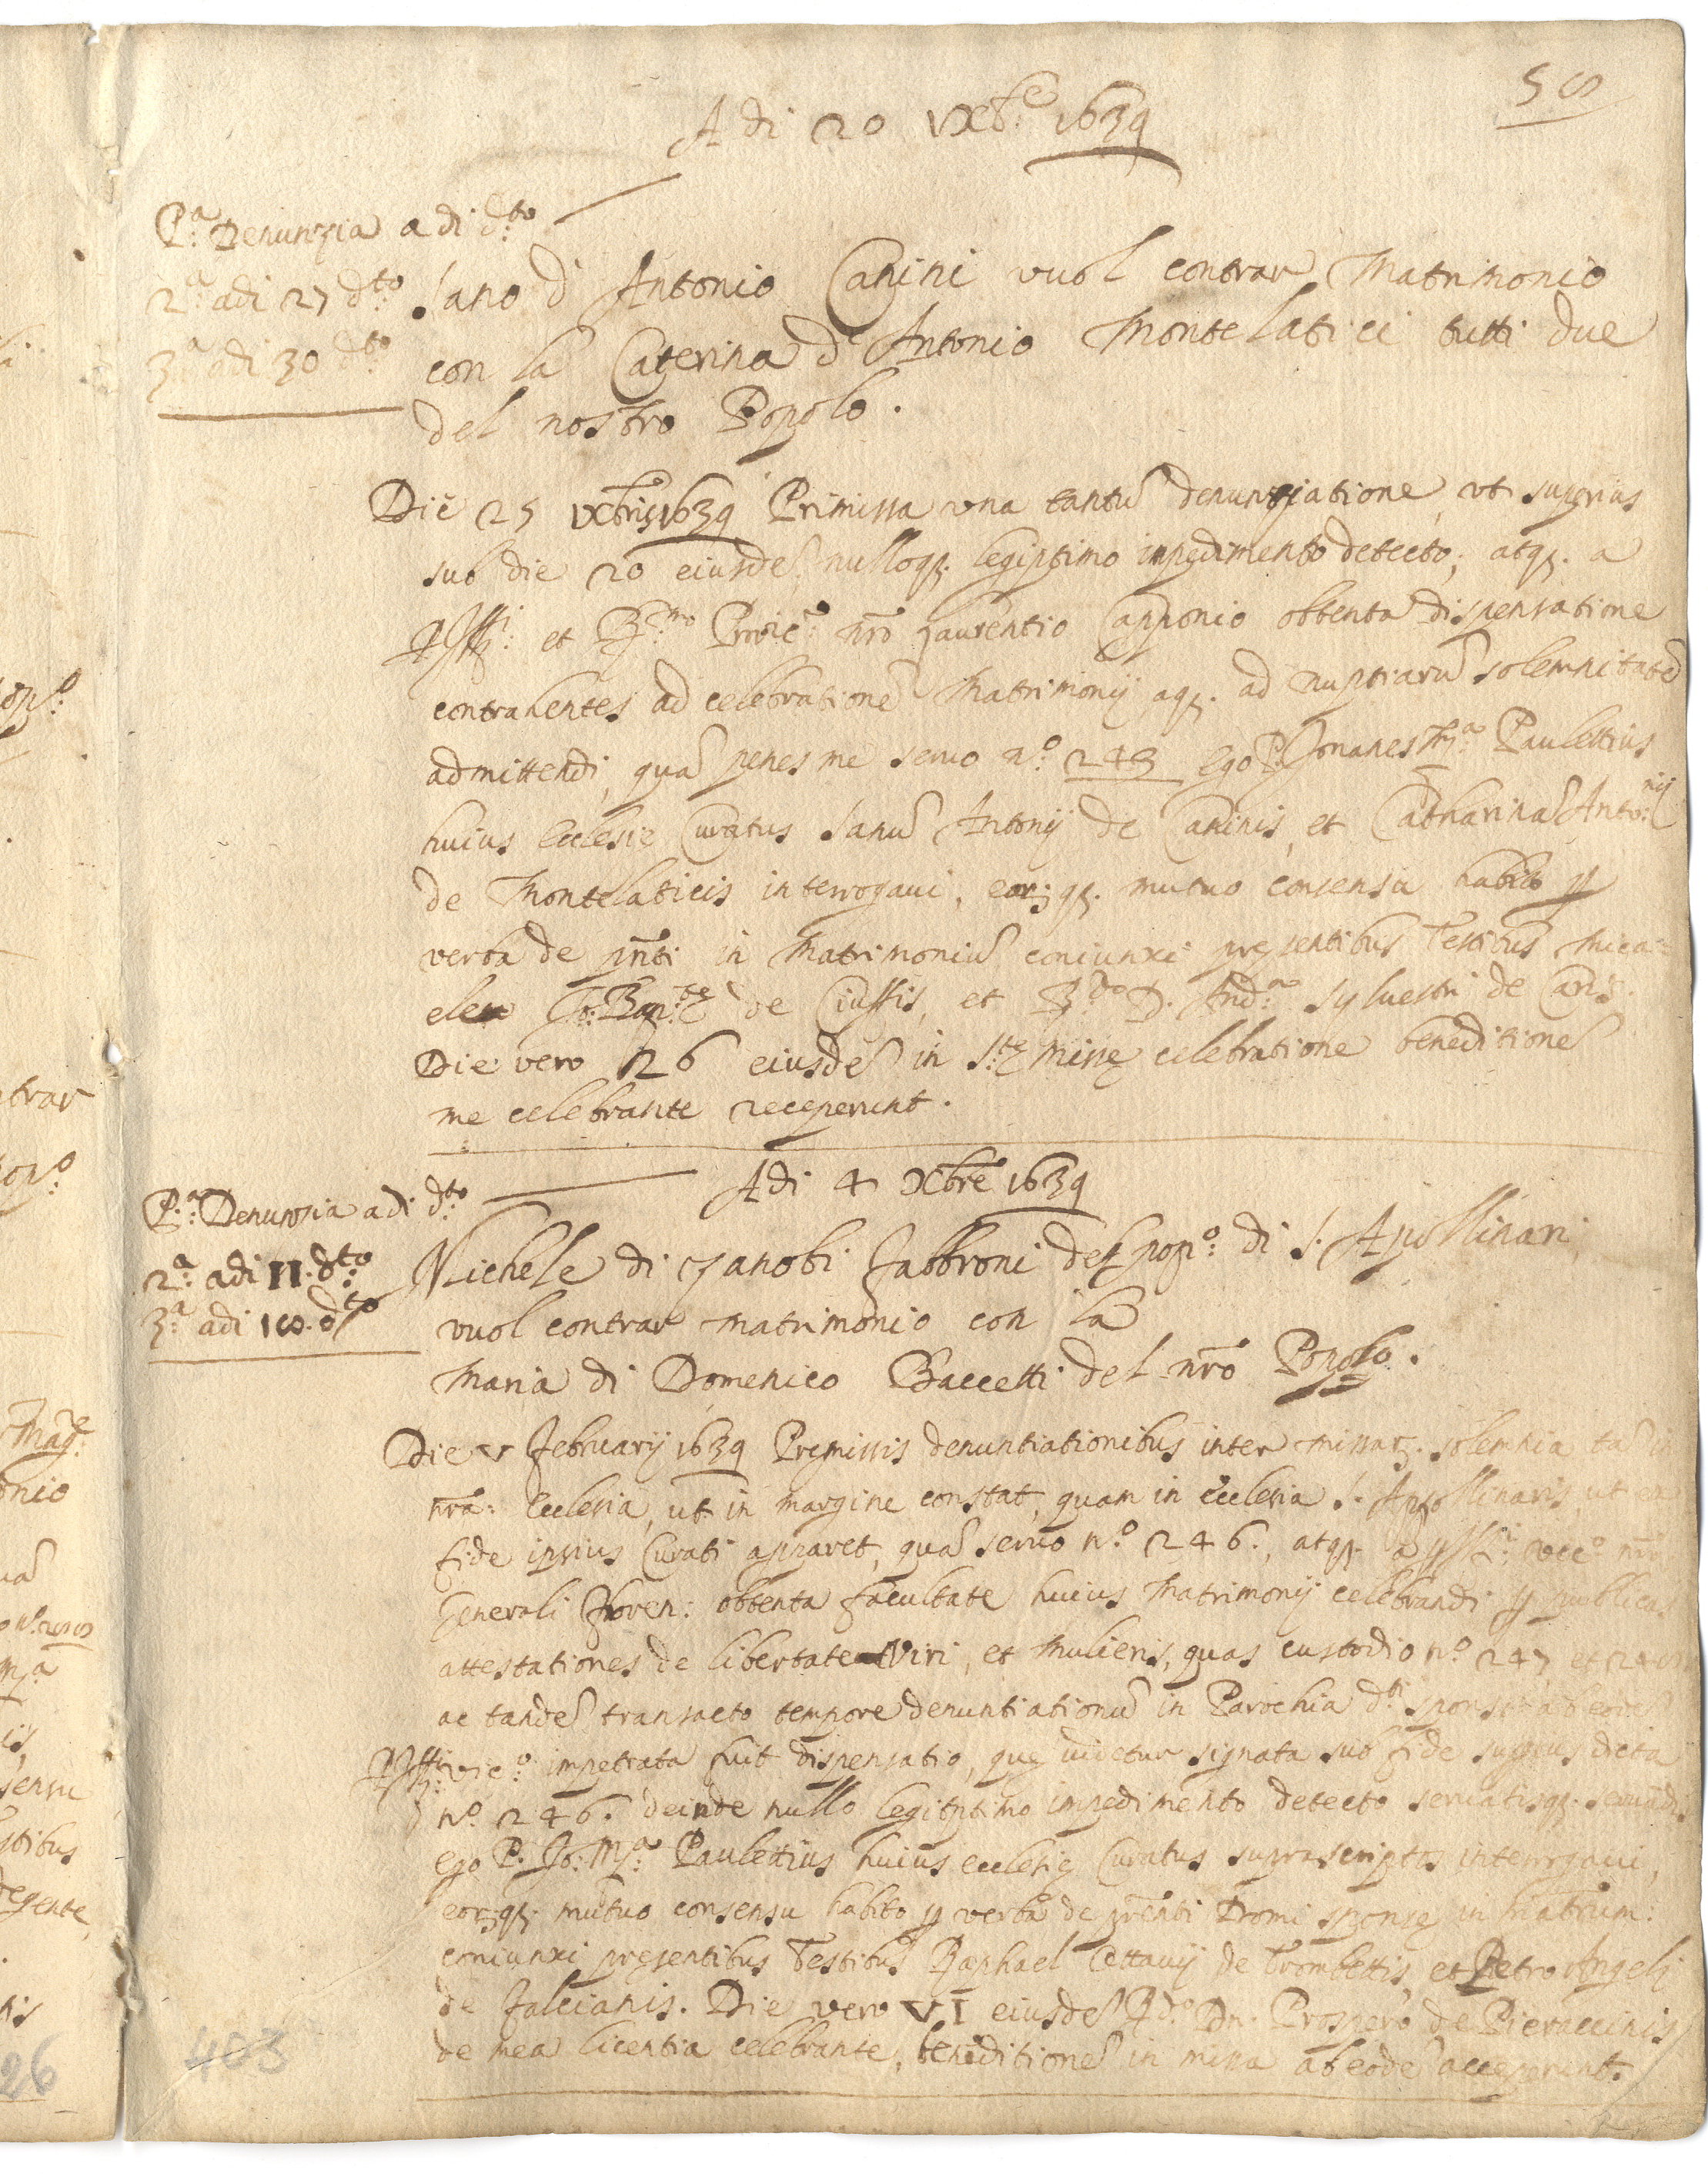 58
A di 20 IXbre 1639
P.a Denunzia a di d.to
2.a adi 27 d.to
3.a adi 30 d.to
Sano d' Antonio Canini vuol contrar Matrimonio
con la Caterina d' Antonio Montelatici tutti due
del nostro Popolo.
Die 25 IXbris 1639 Primissa una tantũ denuntiatione, ut superius
sub die 20 eiusdẽ nulloq; legiptimo inpedimento detecto, atq; a
et Provic.o nr̃o Laurentio Capponio obtenta dispensatione
contrahentes ad celebrationẽ Matrimonij aq; ad nuptiarũ solemnitatẽ
admittendi, quã penes me servo n.o 243 Ego P. Joannes M.a Paulettius
huius Ecclesie Curatus Sanũ Antonij de Caninis, et Catharinã Anto:nij
de Montelaticis interrogavi, eor; q; mutuo consensu habito p
verba de pn̄ti in Matrimoniũ coniunxi presentibus Testibus Mica=
ele Jo: Bap.te de Ciuffis, et R.do D. And.a Sylvestri de Canis.
Die vero 26 eiusdẽ in S.te Misse celebratione beneditionẽ
me celebrante receperunt.
Adi 4 Xbre 1639
P.a Denunzia adi d.to
2.a adi 11. d.to
3.a adi 18. d.to
Michele di Zanobi Fabbroni del pop.o di S. Apollinari
vuol contrar matrimonio con la
Maria di Domenico Baccetti del nr̃o Popolo.
Die V Februarij 1639 Premissis denuntiationibus inter missar; solemnia tã in
nr̃a: Ecclesia, ut in margine constat, quam in Ecclesia S. Apollinaris, ut ex
fide ipsius Curati apparet, quã servo n.o 246., atq; a vic.o nr̃o
Generali Floren: obtenta facultate huius Matrimonij celebrandi p publicas
attestationes de libertate Viri, et Mulieris, quas custodio n.o 247 et 248
ac tandẽ transacto tempore denuntiationũ in Parochia d.ti sponsi ab eodẽ
vic.o impetrata fuit dispensatio, que videtur signata sub fide superius dicta
n.o 246. deinde nullo legiptimo impedimento detecto servatisq; servãdis
ego P. Jo: M.a Paulettius huius ecclesie Curatus suprascriptos interrogavi,
eor; q; mutuo consensu habito p verba de pr̃enti Domi sponse in Matrim:
coniunxi presentibus Testibus Raphael Ottavij de Trombettis, et Pietro Angeli
de Falcianis. Die vero VI eiusdẽ R.do Dn. Prospero de Pieraccinis
de mea licentia celebrante, beneditionẽ in missa ab eodẽ acceperunt.
403